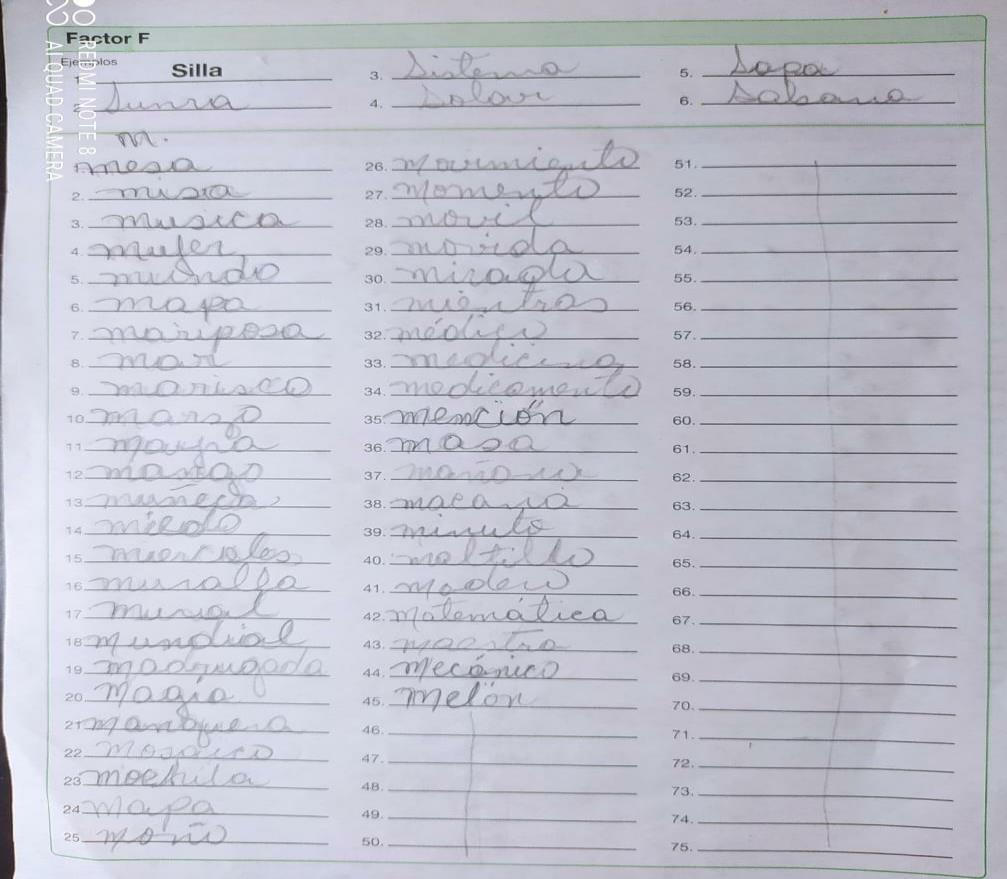 Factor F
Ejemplos
1. Silla
2. Sunra
3. Sistema
4. Solar
5. Sopa
6. Sabana
M.
1. mesa
2. misa
3. musica
4. mujer
5. mundo
6. mapa
7. mariposa
8. mar
9. marisco
10. marzo
11. magia
12. mango
13. muñeca
14. miedo
15. miercoles
16. muralla
17. mural
18. mundial
19. madrugada
20. Magia
21. manguera
22. Mosaico
23. mochila
24. Mapa
25. moño
26. Movimiento
27. Momento
28. movil
29. movida
30. mirada
31. mientras
32. médico
33. medicina
34. medicamento
35. mención
36. masa
37.
38. macana
39. minuto
40. maltillo
41. Madero
42. Matemática
43. maestra
44. Mecánico
45. Melón
46.
47.
48.
49.
50.
51.
52.
53.
54.
55.
56.
57.
58.
59.
60.
61.
62.
63.
64.
65.
66.
67.
68.
69.
70.
71.
72.
73.
74.
75.
REDMI NOTE 8
AI QUAD CAMERA